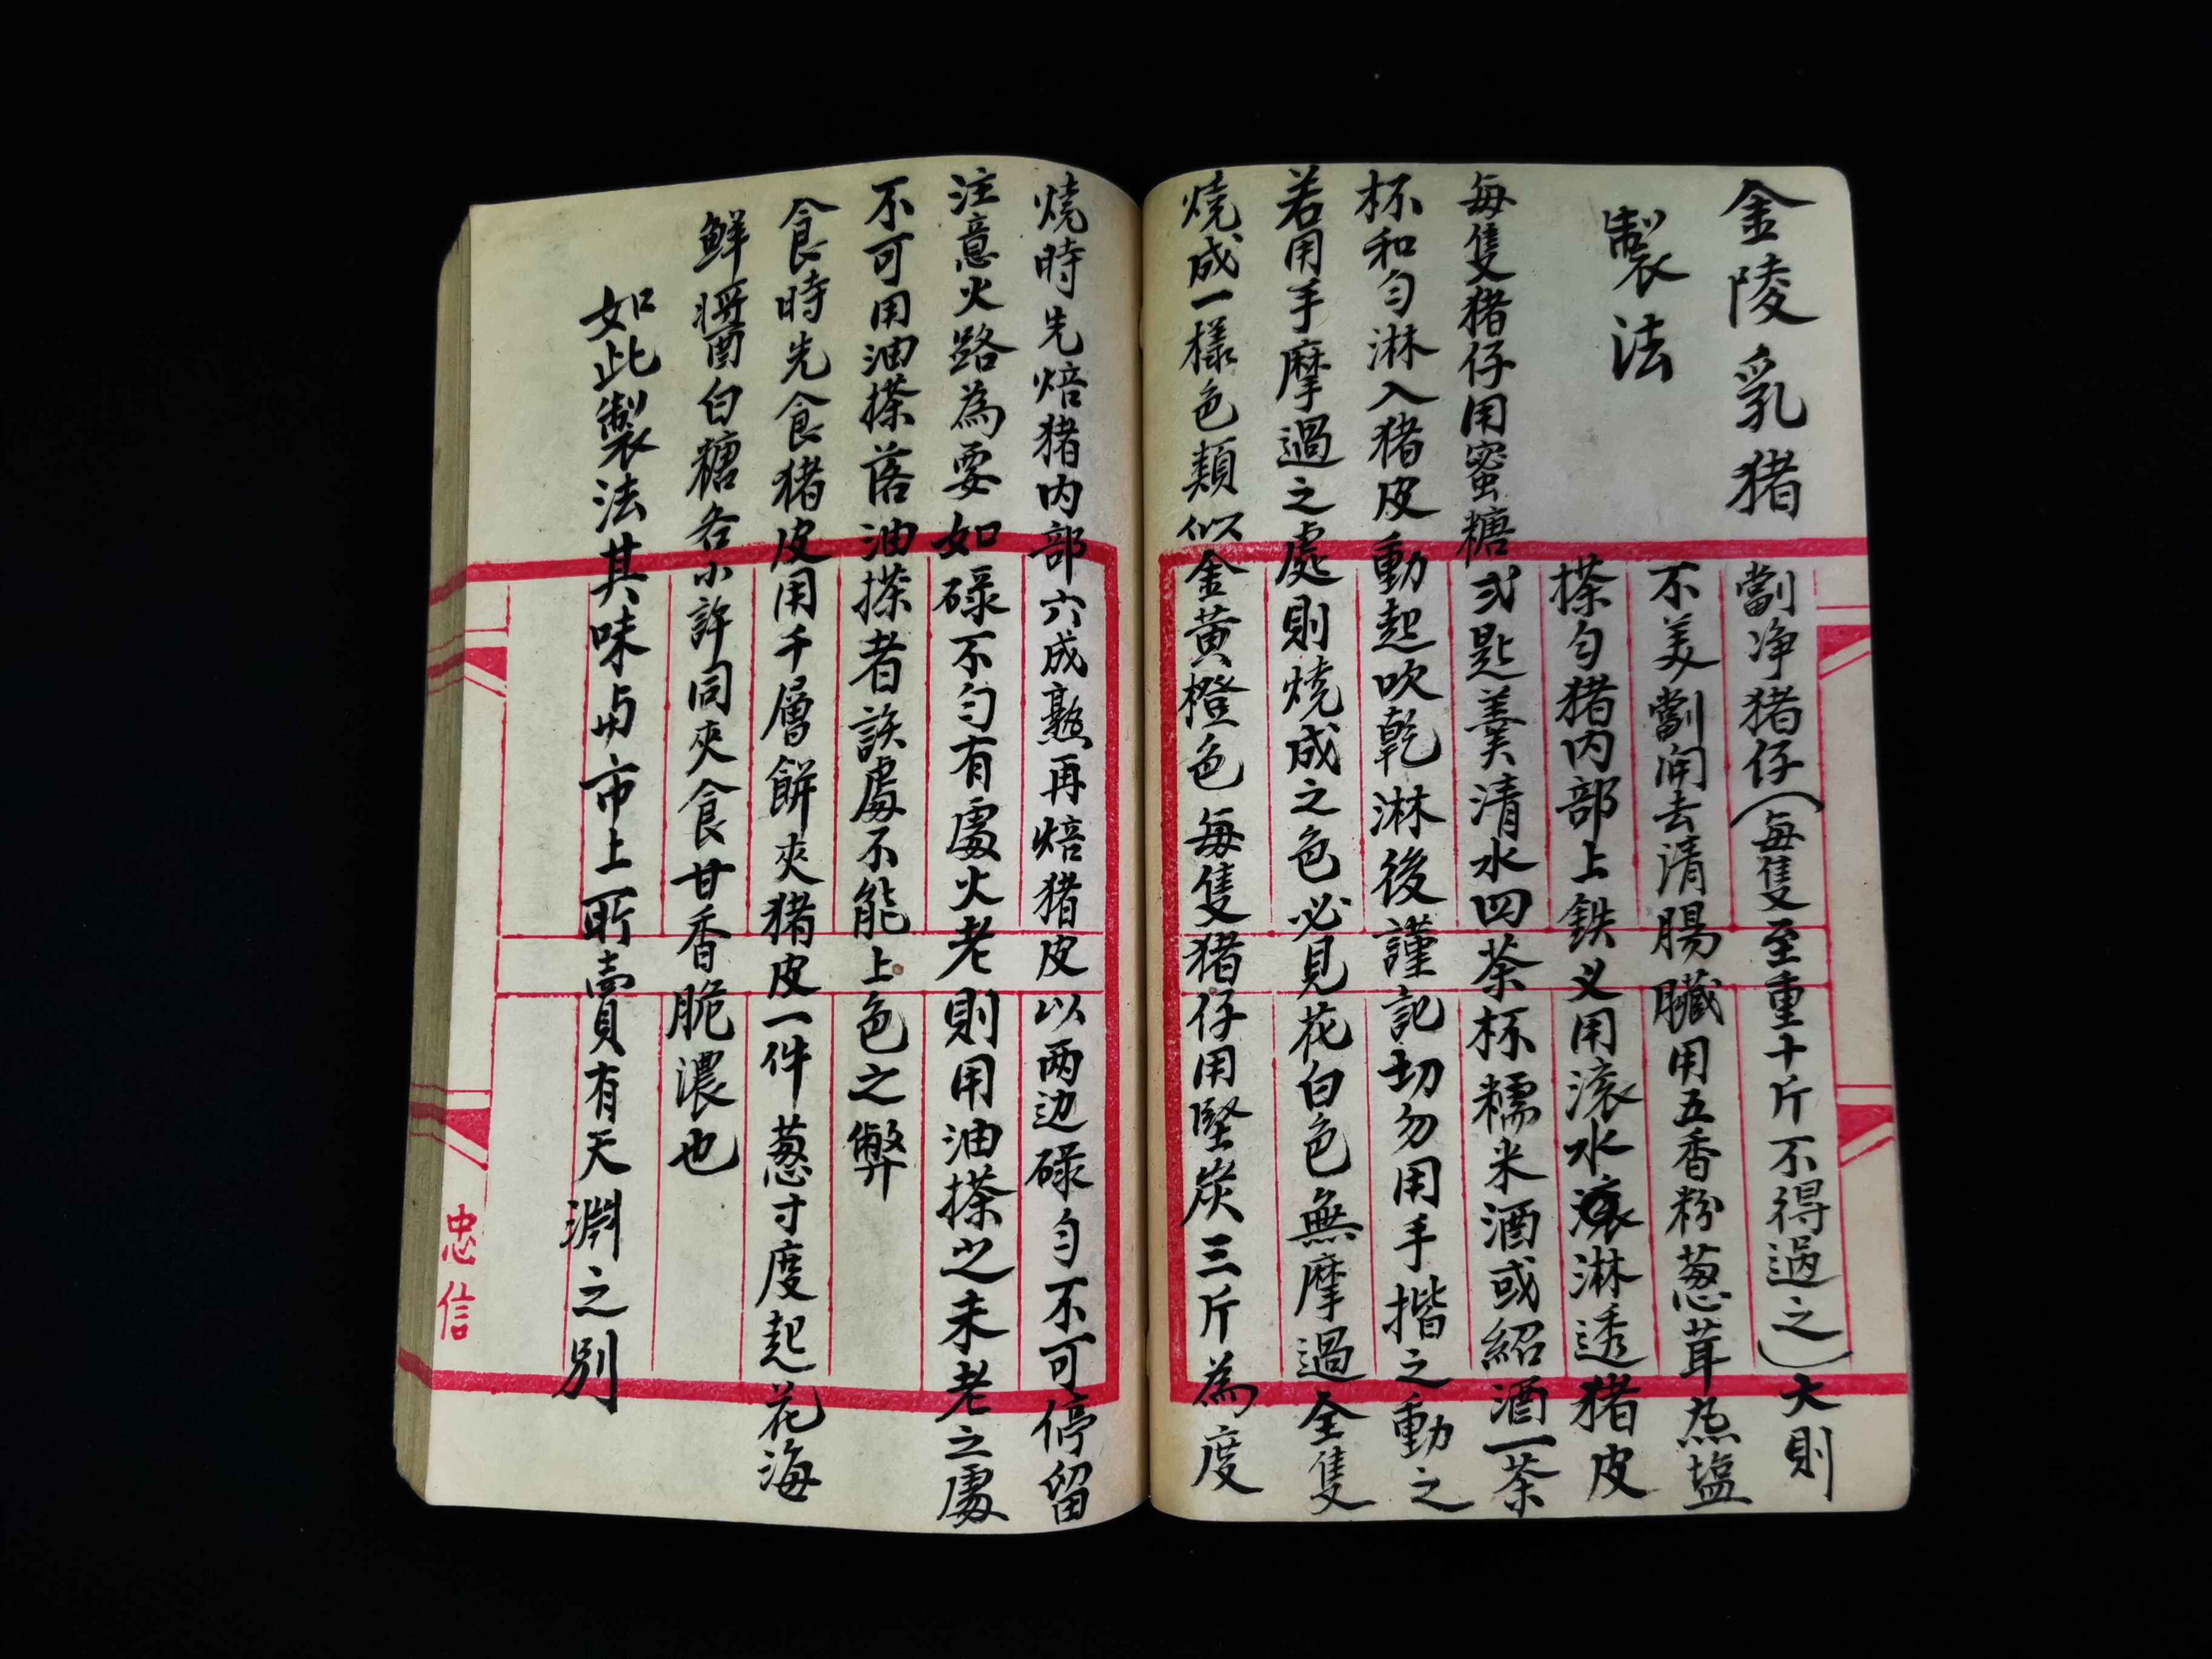 金陵乳猪
製法
劏净猪仔(每隻至重十斤不得過之)大則
不美劏開去清腸臟用五香粉葱茸𤋮塩
搽匀猪内部上鉄义用滚水滚淋透猪皮
每隻猪仔用蜜糖弍匙羹清水四茶杯糯米酒或紹酒一茶
杯和匀淋入猪皮動起吹乾淋後謹記切勿用手揩之動之
若用手摩過之處則燒成之色必見花白色無摩過全隻
燒成一樣色類似金黃橙色每隻猪仔用堅炭三斤為度
燒時先焙猪内部六成熟再焙猪皮以两边碌匀不可停留
注意火路為要如碌不匀有處火老則用油搽之未老之處
不可用油搽落油搽者該處不能上色之弊
食時先食猪皮用千層餅夾猪皮一件葱寸度起花海
鮮醬白糖各小許同夾食甘香脆濃也
如此製法其味与市上所賣有天淵之別
忠信